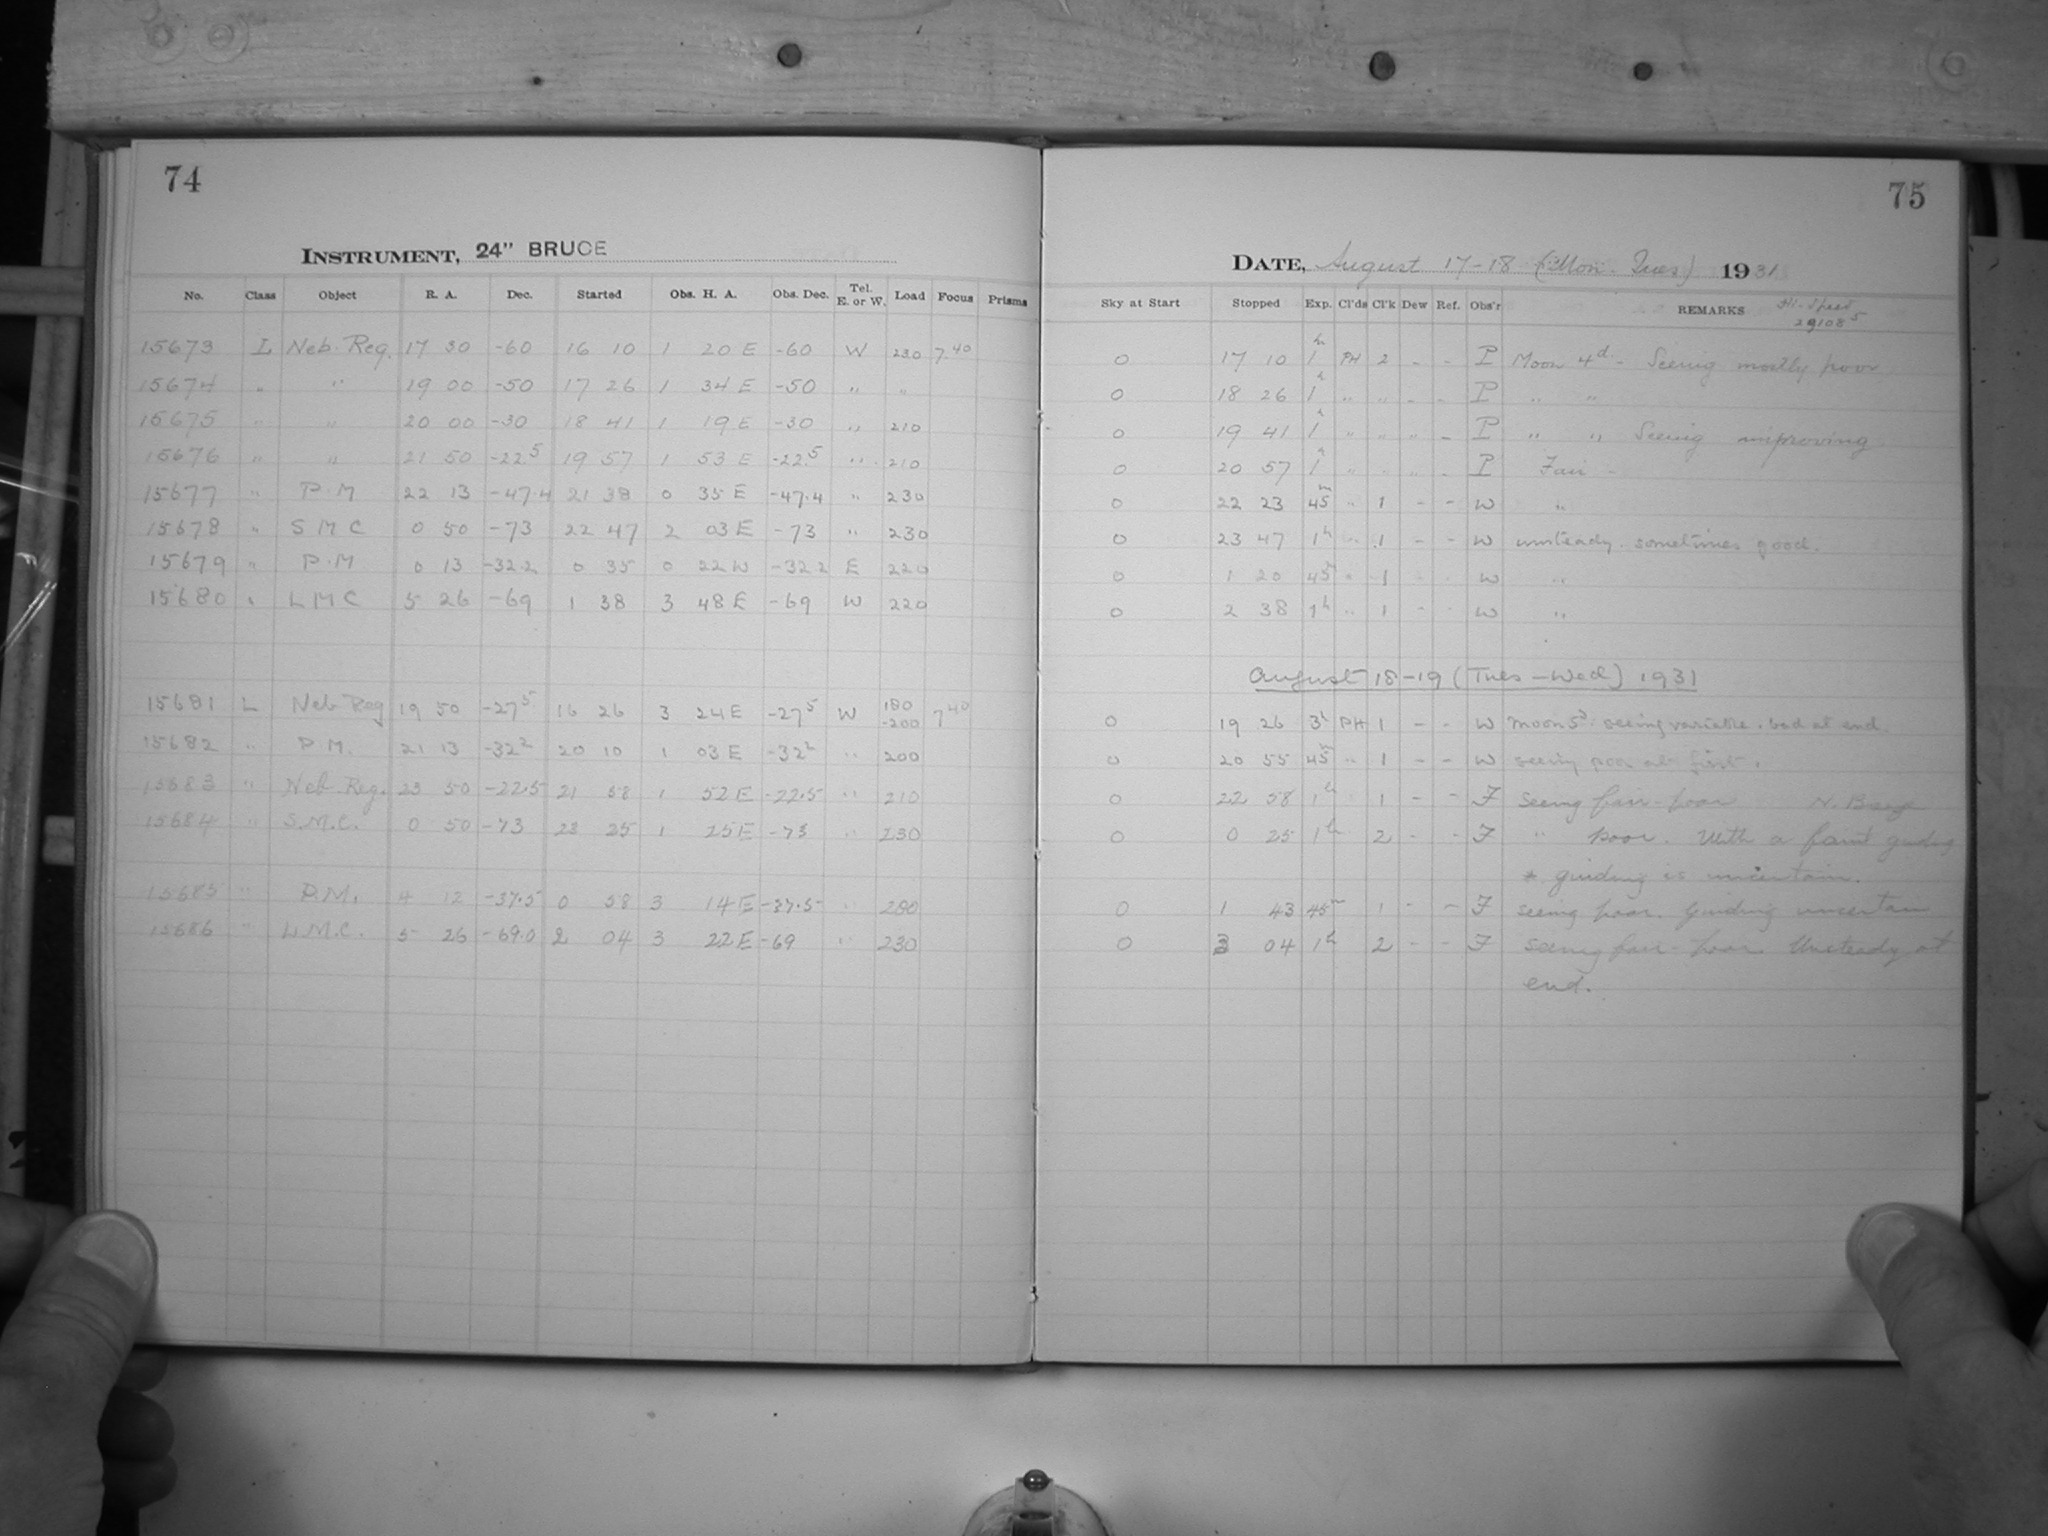 74
INSTRUMENT, 24" BRUCE
No. Class Object R. A. Dec. Started Obs. H. A. Obs. Dec. Tel. E. or W. Load Focus Prisms
15673 L Neb. Reg. 17 30 -60 16 10 1 20 E -60 W 230 7.40
15674 " " 19 00 -50 17 26 1 34 E -50 " "
15675 " " 20 00 -30 18 41 1 19 E -30 " 210
15676 " " 21 50 -22.5 19 57 1 53 E -22.5 " 210
15677 " P.M 22 13 -47.4 21 38 0 35 E -47.4 " 230
15678 " S M C 0 50 -73 22 47 2 03 E -73 " 230
15679 " P.M 0 13 -32.2 0 35 0 22 W -32.2 E 220
15680 " L M C 5 26 -69 1 38 3 48 E -69 W 220
15681 L Neb Reg 19 50 -27.5 16 26 3 24 E -27.5 W 180-200 7.40
15682 " P.M. 21 13 -32.2 20 10 1 03 E -32.2 " 200
15683 " Neb. Reg. 23 50 -22.5 21 58 1 52 E -22.5 " 210
15684 " S.M.C. 0 50 -73 23 25 1 25 E -73 " 230
15685 " P.M. 4 12 -37.5 0 58 3 14 E -37.5 "
15686 " L.M.C. 5 26 -69.0 2 04 3 22 E -69 " 230
75
DATE, August 17-18 (Mon. Tues) 1931
Sky at Start Stopped Exp. Cl'ds Cl'k Dew Ref. Obs'r REMARKS Hi-Speed
0 17 10 1h PH 2 - - P Moon 4d - Seeing mostly poor
0 18 26 1h " " - - P " "
0 19 41 1h " " " - P " " Seeing improving
0 20 57 1h " " " - P Fair -
0 22 23 45m " 1 - - W "
0 23 47 1h " 1 - - W unsteady. sometimes good.
0 1 20 45m " 1 - - W "
0 2 38 1h " 1 - - W "
August 18-19 (Tues-Wed) 1931
0 19 26 3h PH 1 - - W Moon 5d: seeing variable. bad at end
0 20 55 45m " 1 - - W seeing poor at first.
0 22 58 1h " 1 - - F Seeing fair-poor N.
0 0 25 1h 2 - - F " poor. With a faint guiding
* guiding is uncertain.
0 1 43 45m 1 - - F seeing poor. Guiding uncertain
0 3 04 1h 2 - - F seeing fair-poor Unsteady at
end.